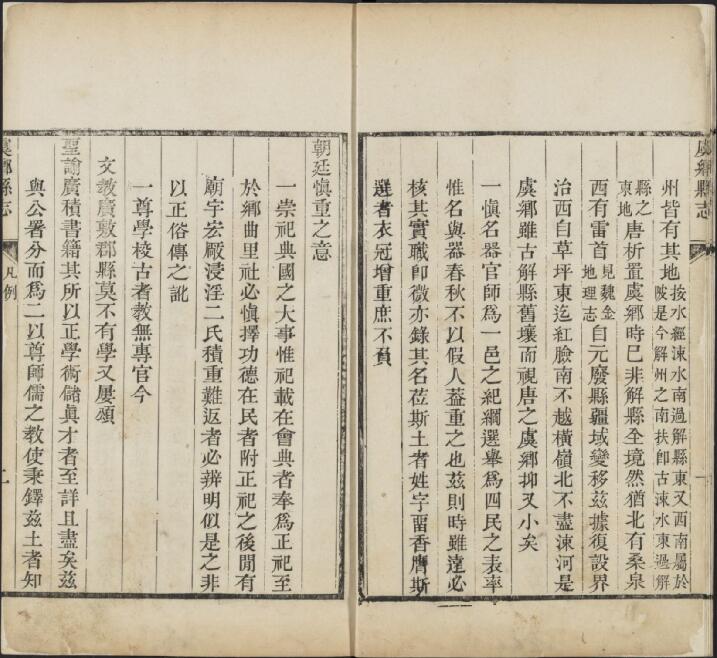 虞鄉縣志
州皆有其地按水經涑水南過解縣東又西南屬於
陂是今解州之南扶卽古涑水東過解
縣之
東地唐析置虞鄉時已非解縣全境然猶北有桑泉
西有雷首見魏金
地理志自元廢縣疆域變移茲據復設界
治西自草坪東迄紅臉南不越橫嶺北不盡涑河是
虞鄉雖古解縣舊壤而視唐之虞鄉抑又小矣
一愼名器官師爲一邑之紀綱選舉爲四民之表率
惟名與器春秋不以假人葢重之也茲則時雖遠必
核其實職卽微亦錄其名莅斯土者姓字畱香膺斯
選者衣冠增重庶不負
朝廷愼重之意
一崇祀典國之大事惟祀載在會典者奉爲正祀至
於鄉曲里社必愼擇功德在民者附正祀之後閒有
廟宇宏厰浸淫二氏積重難返者必辨明似是之非
以正俗傳之訛
一尊學校古者教無專官今
文教廣敷郡縣莫不有學又屢頒
聖諭廣積書籍其所以正學術儲眞才者至詳且盡矣茲
與公署分而爲二以尊師儒之教使秉鐸茲土者知
虞鄉縣志
凡例
二